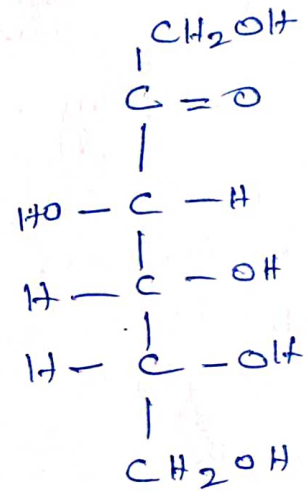 CH2OH
C = O
HO - C - H
H - C - OH
H - C - OH
CH2OH